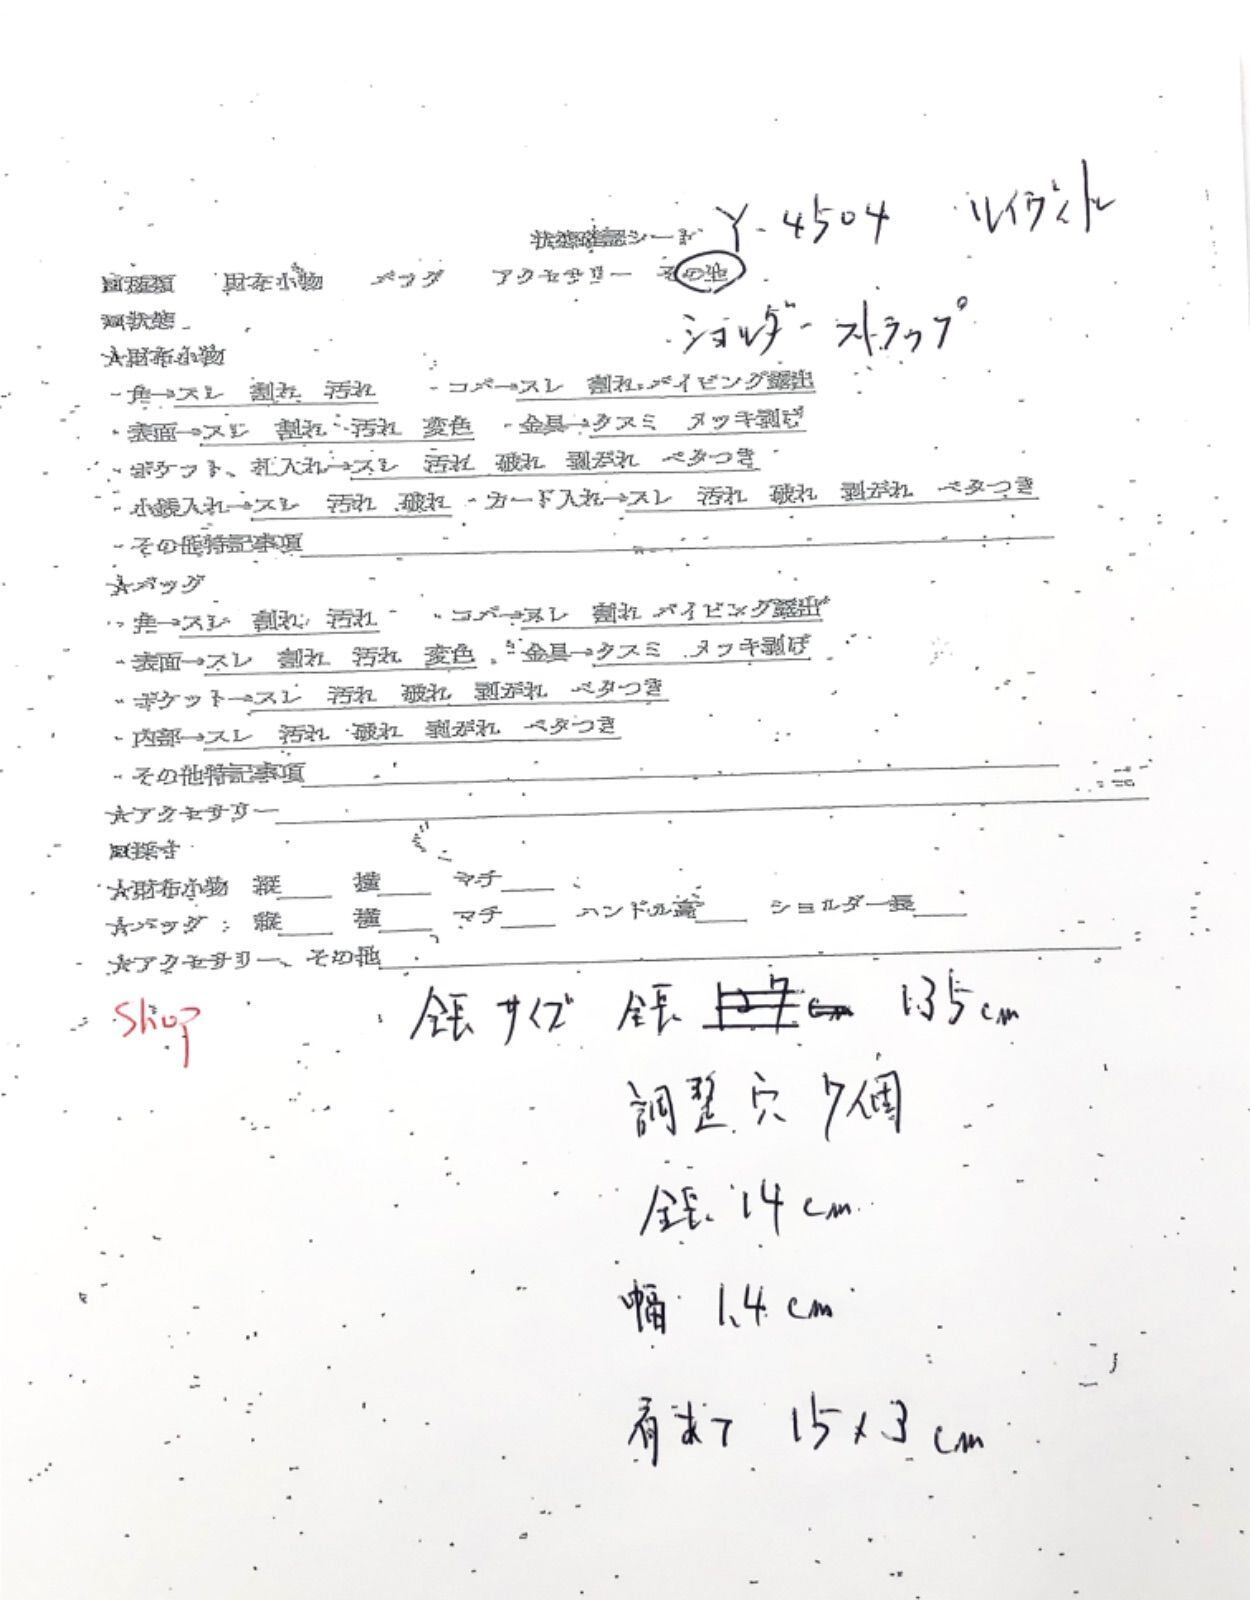 状態確認シート Y-4504 ルイヴィトン
■種類 財布小物 バッグ アクセサリー その他
ショルダーストラップ
■状態
★財布小物
・角→スレ 割れ 汚れ ・コバ→スレ 割れ パイピング露出
・表面→スレ 割れ 汚れ 変色 ・金具→クスミ メッキ剥げ
・ポケット、札入れ→スレ 汚れ 破れ 剥がれ ベタつき
・小銭入れ→スレ 汚れ 破れ ・カード入れ→スレ 汚れ 破れ 剥がれ ベタつき
・その他特記事項
★バッグ
・角→スレ 割れ 汚れ ・コバ→スレ 割れ パイピング露出
・表面→スレ 割れ 汚れ 変色 ・金具→クスミ メッキ剥げ
・ポケット→スレ 汚れ 破れ 剥がれ ベタつき
・内部→スレ 汚れ 破れ 剥がれ ベタつき
・その他特記事項
★アクセサリー
■採寸
★財布小物 縦 横 マチ
★バッグ:縦 横 マチ ハンドル高 ショルダー長
★アクセサリー、その他
shop 全長サイズ 全長 135cm
調整穴 7個
全長 14cm
幅 1.4cm
肩あて 15×3cm